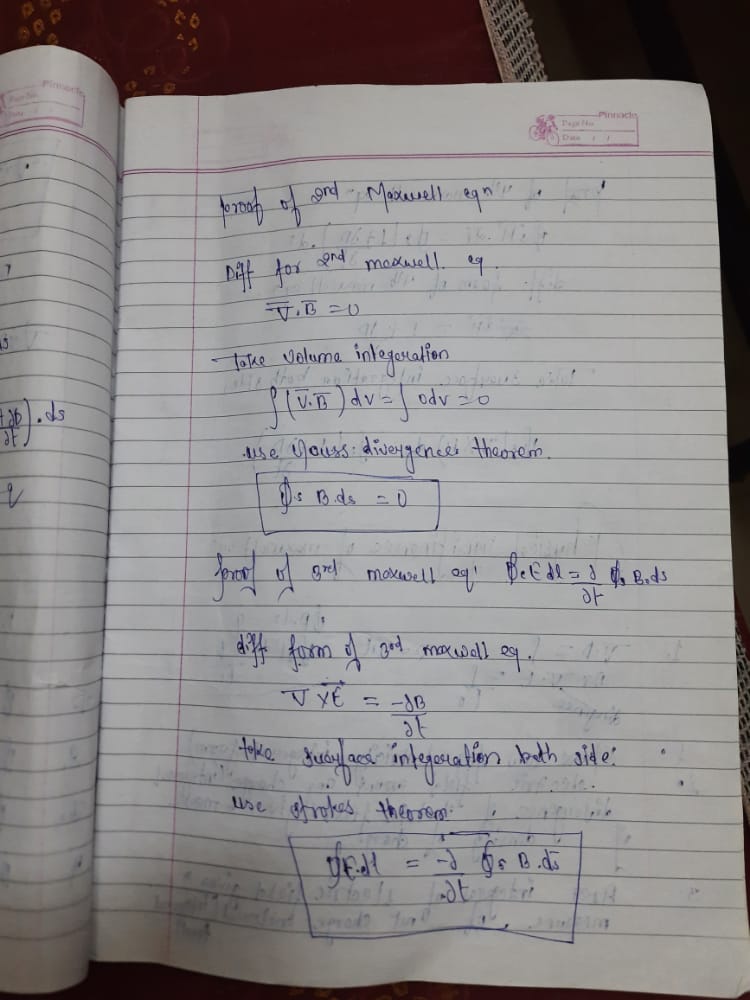 Pinnacle
Page No.
Date / /
Pinnacle
Page No.
Date / /
proof of 2nd Maxwell eqn
Diff for 2nd maxwell eq
∇̅.B̅ = 0
Take volume integeration
∫(∇̅.B̅) dv = ∫ 0dv = 0
use Gauss divergence theorem.
∮s B.ds = 0
proof of 3rd maxwell eq: ∮c E dl = ∂/∂t ∮s B.ds
diff form of 3rd maxwell eq.
∇ × E⃗ = -∂B/∂t
take surface integeration both side:
use strokes theorem:
∮E.dl = -∂/∂t ∮s B.ds
∂t) .ds